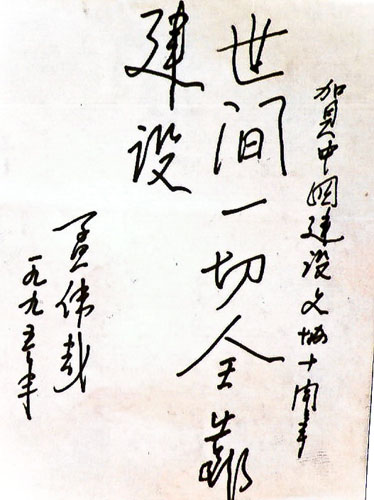 贺中国建设文协十周年
世间一切全靠
建设
孟伟哉
一九九五年